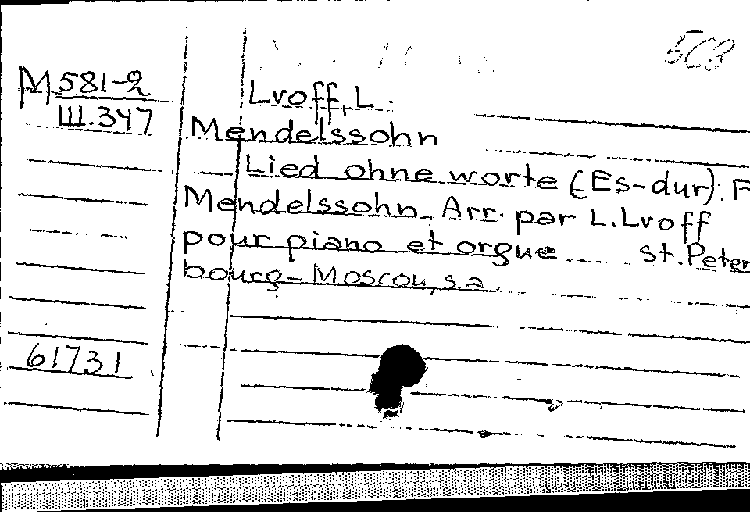 503
M 581-2
III.347
Lvoff, L.
Mendelssohn
Lied ohne worte (Es-dur). F
Mendelssohn. Arr. par L. Lvoff
pour piano et orgue St. Peter
bourg-Moscou, s.a.
61731